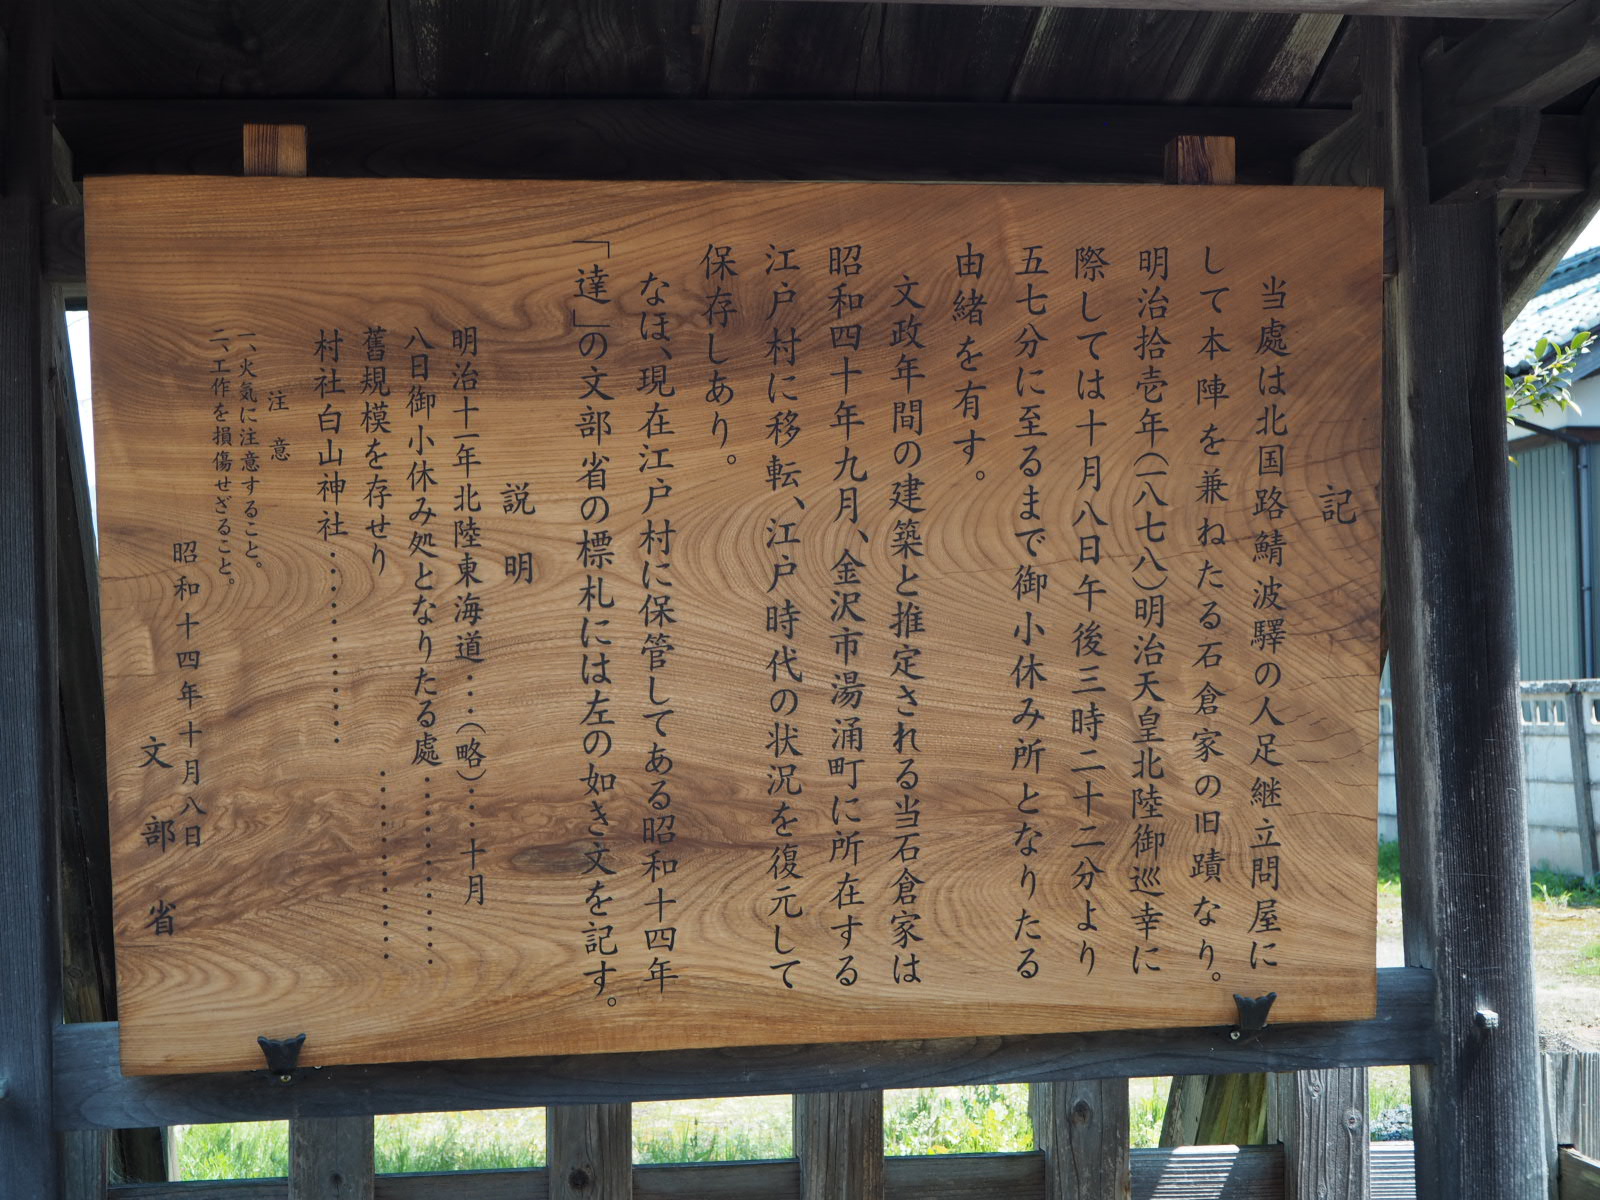 記
当處は北国路鯖波驛の人足継立問屋に
して本陣を兼ねたる石倉家の旧蹟なり。
明治拾壱年(一八七八)明治天皇北陸御巡幸に
際しては十月八日午後三時二十二分より
五七分に至るまで御小休み所となりたる
由緒を有す。
文政年間の建築と推定される当石倉家は
昭和四十年九月、金沢市湯涌町に所在する
江戸村に移転、江戸時代の状況を復元して
保存しあり。
なほ、現在江戸村に保管してある昭和十四年
「達」の文部省の標札には左の如き文を記す。
説明
明治十一年北陸東海道・・・(略)・・・十月
八日御小休み処となりたる處・・・・・・・・・・
舊規模を存せり　・・・・・・・・・・
村社白山神社・・・・・・・・・・
注意
一、火気に注意すること。
二、工作を損傷せざること。
昭和十四年十月八日
文部省